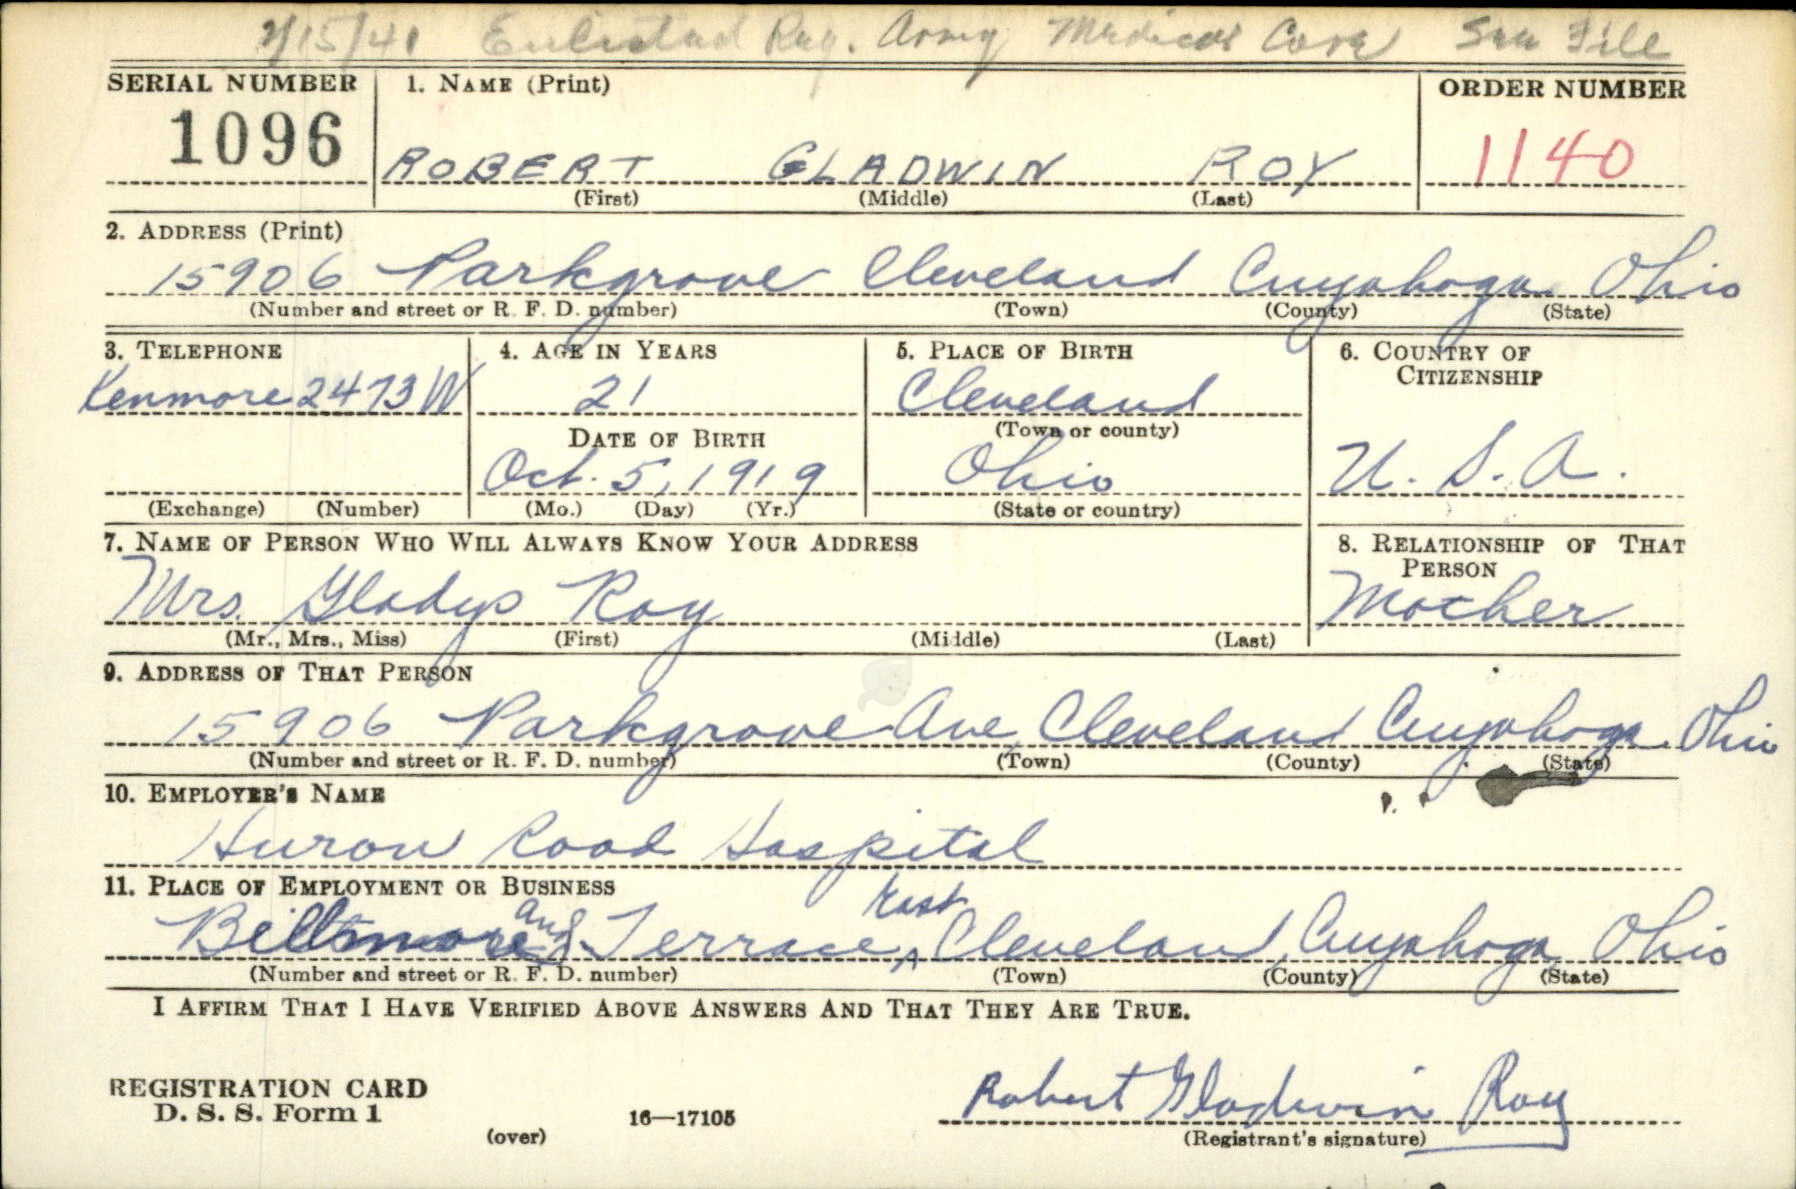 2/15/41 Enlisted Reg. Army Medical Corp See File
SERIAL NUMBER 1. NAME (Print) ORDER NUMBER
1096 ROBERT GLADWIN ROY 1140
(First) (Middle) (Last)
2. ADDRESS (Print)
15906 Parkgrove Cleveland Cuyahoga Ohio
(Number and street or R. F. D. number) (Town) (County) (State)
3. TELEPHONE 4. AGE IN YEARS 5. PLACE OF BIRTH 6. COUNTRY OF CITIZENSHIP
Kenmore 2473W 21 Cleveland
DATE OF BIRTH (Town or county)
Oct. 5, 1919 Ohio U. S. A.
(Exchange) (Number) (Mo.) (Day) (Yr.) (State or country)
7. NAME OF PERSON WHO WILL ALWAYS KNOW YOUR ADDRESS 8. RELATIONSHIP OF THAT PERSON
Mrs. Gladys Roy Mother
(Mr., Mrs., Miss) (First) (Middle) (Last)
9. ADDRESS OF THAT PERSON
15906 Parkgrove Ave Cleveland Cuyahoga Ohio
(Number and street or R. F. D. number) (Town) (County) (State)
10. EMPLOYER'S NAME
Huron Road Hospital
11. PLACE OF EMPLOYMENT OR BUSINESS
Beltmore and Terrace, East Cleveland, Cuyahoga Ohio
(Number and street or R. F. D. number) (Town) (County) (State)
I AFFIRM THAT I HAVE VERIFIED ABOVE ANSWERS AND THAT THEY ARE TRUE.
REGISTRATION CARD
D. S. S. Form 1 16—17105 Robert Gladwin Roy
(over) (Registrant's signature)